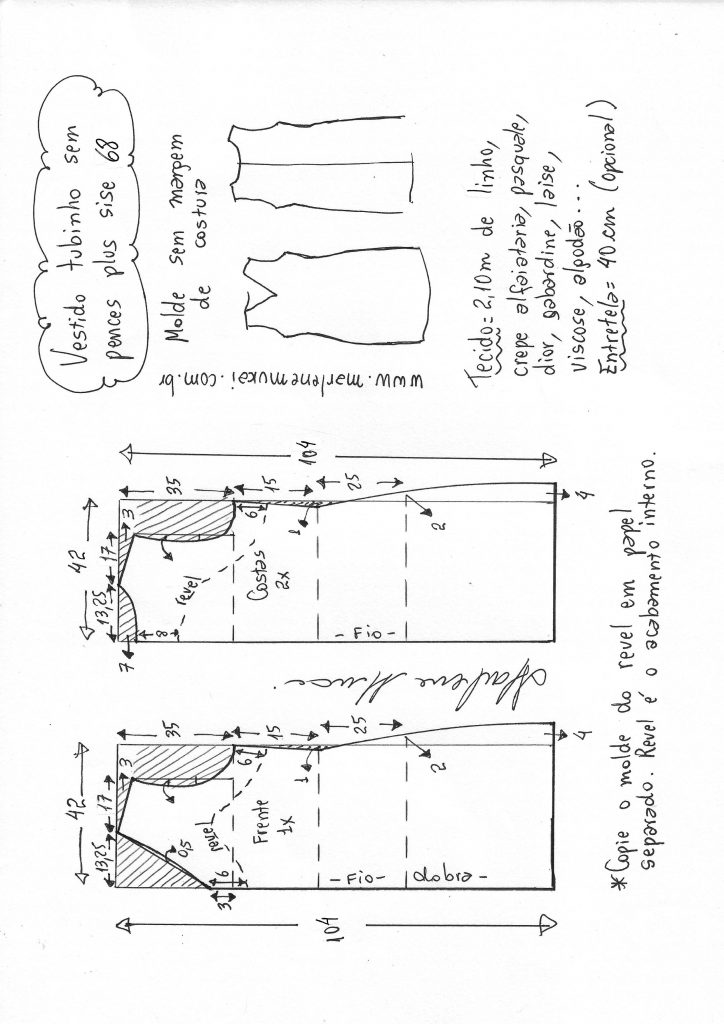 Vestido tubinho sem
pences plus sise 68
Molde sem margem
de costura
www.marlenemukai.com.br
Tecido = 2,10m de linho,
crepe alfaiataria, pasquale,
dior, gabardine, laise,
viscose, algodão...
Entretela = 40 cm (opcional)
42
13,25
17
3
35
15
25
104
7
8
6
revel
Costas
2x
1
2
4
- Fio -
Marlene Mukai
42
13,25
17
3
35
15
25
104
0,5
3
6
6
revel
Frente
1x
1
2
4
- Fio - dobra -
*Copie o molde do revel em papel
separado. Revel é o acabamento interno.